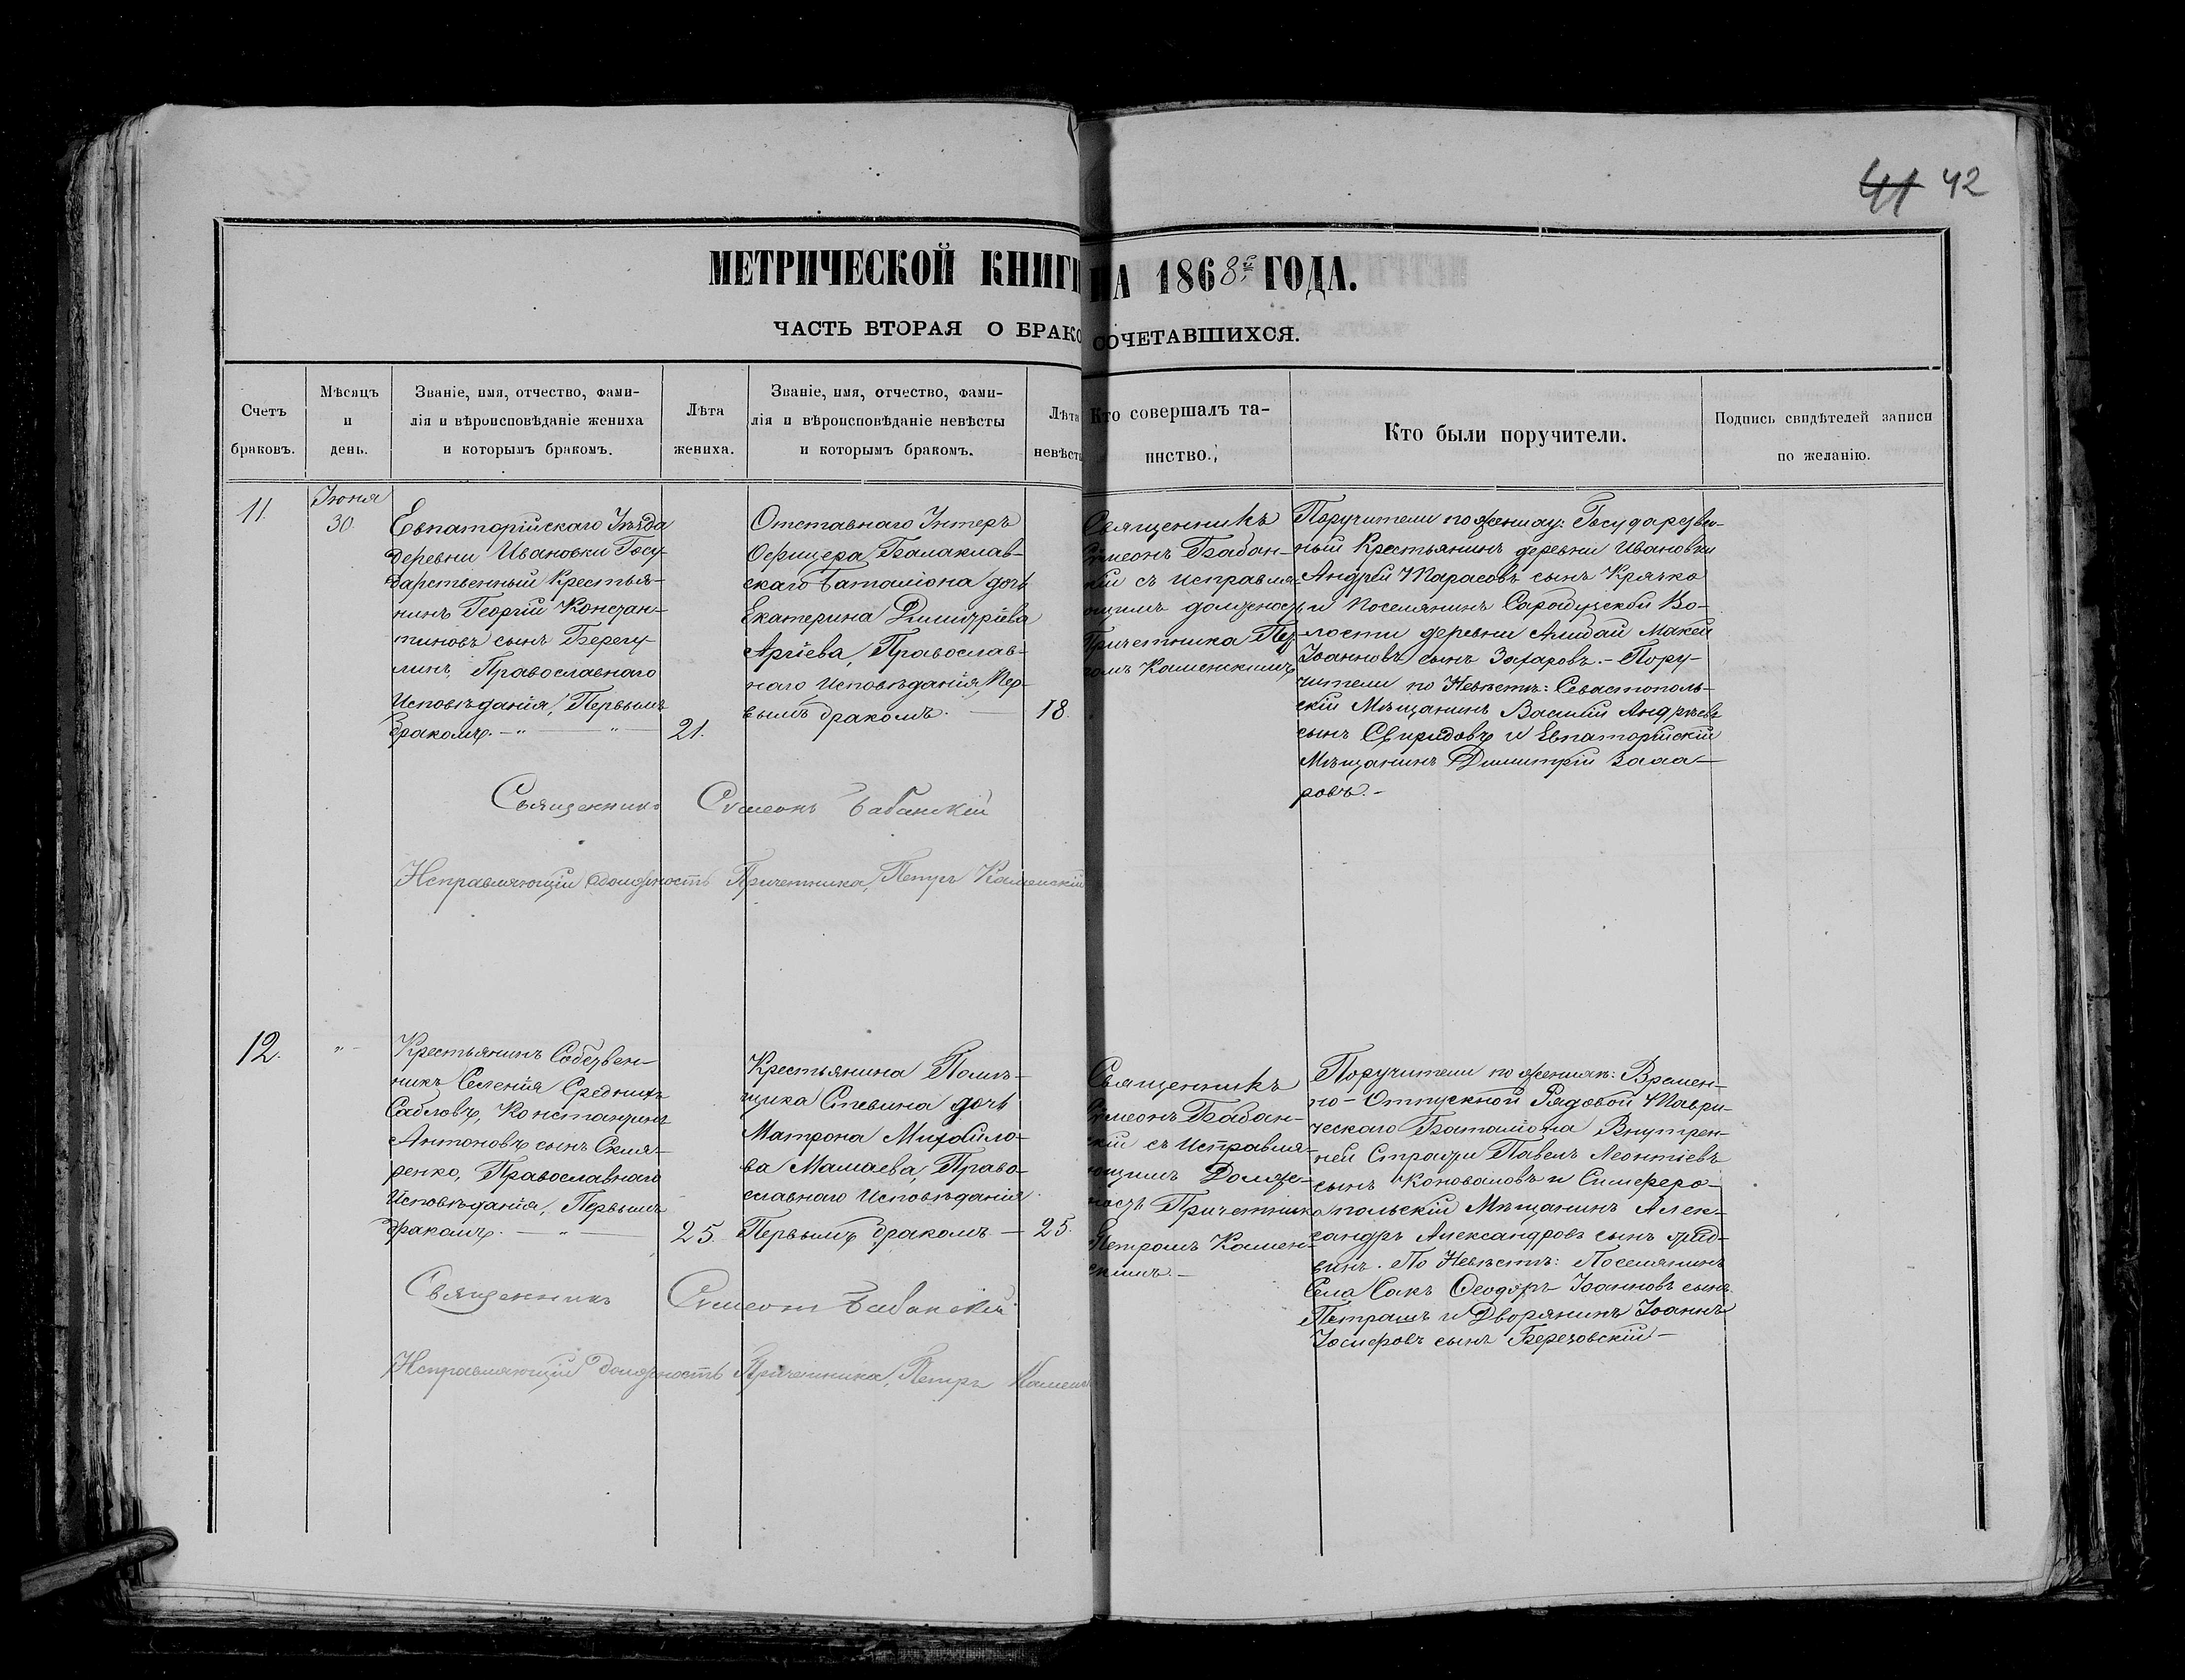 41 42
МЕТРИЧЕСКОЙ КНИГИ НА 1868й ГОДА.
ЧАСТЬ ВТОРАЯ О БРАКОСОЧЕТАВШИХСЯ.
Счетъ
браковъ.
Мѣсяцъ
и
день.
Званіе, имя, отчество, фами-
лія и вѣроисповѣданіе жениха
и которымъ бракомъ.
Лѣта
жениха.
Званіе, имя, отчество, фами-
лія и вѣроисповѣданіе невѣсты
и которымъ бракомъ.
Лѣта
невѣсты
Кто совершалъ та-
инство.
Кто были поручители.
Подпись свидѣтелей записи
по желанію.
11.
Іюня
30.
Евпаторійскаго Уѣзда
деревни Ивановки Госу-
дарственный Крестья-
нинъ Георгій Констан-
тиновъ сынъ Берегу-
линъ, Православнаго
Исповѣданія, Первымъ
бракомъ.
21.
Отставнаго Унтеръ
Офицера Балаклав-
скаго Баталіона дочь
Екатерина Димитріева
Аргіева, Православ-
наго Исповѣданія, Пер-
вымъ бракомъ.
18.
Священникъ
Сѵмеонъ Бабан-
кій съ исправля-
ющимъ должность
Причетника Пет-
ромъ Каменскимъ
Поручители по жениху: Государствен-
ный Крестьянинъ деревни Ивановки
Андрей Тарасовъ сынъ Крячко
и Поселянинъ Сарабузской Во-
лости деревни Ачидай Макей
Іоанновъ сынъ Захаровъ. - Пору-
чители по Невѣстѣ: Севастополь-
скій Мѣщанинъ Василій Андреевъ
сынъ Свиридовъ и Евпаторійскій
Мѣщанинъ Димитрій
ровъ. -
Священникъ Сѵмеонъ Бабанскій
Исправляющій должность Причетника, Петръ Каменскій
12.
Крестьянинъ Собствен-
никъ Селенія Среднихъ
Сабловъ, Константинъ
Антоновъ сынъ Скля-
ренко, Православнаго
Исповѣданія, Первымъ
бракомъ.
25.
Крестьянина Помѣ-
щика Стевина дочь
Матрона Михайло-
ва Мамаева, Право-
славнаго Исповѣданія
Первымъ бракомъ
25.
Священникъ
Сѵмеонъ Бабан-
скій съ Исправля-
ющимъ Долж-
ность Причетника
Петромъ Камен-
скимъ. -
Поручители по женихѣ: Времен-
но-Отпускной Рядовой Таври-
ческаго Баталіона Внутрен-
ней Стражи Павелъ Леонтіевъ
сынъ Коноваловъ и Симферо-
польскій Мѣщанинъ Алек-
сандръ Александровъ сынъ
винъ. По Невѣстѣ: Поселянинъ
Села Сакъ Ѳеодоръ Іоанновъ сынъ
Петрашъ и Дворянинъ Іоаннъ
Іосифовъ сынъ Березовскій -
Священникъ Сѵмеонъ Бабанскій
Исправляющій должность Причетника, Петръ Каменс